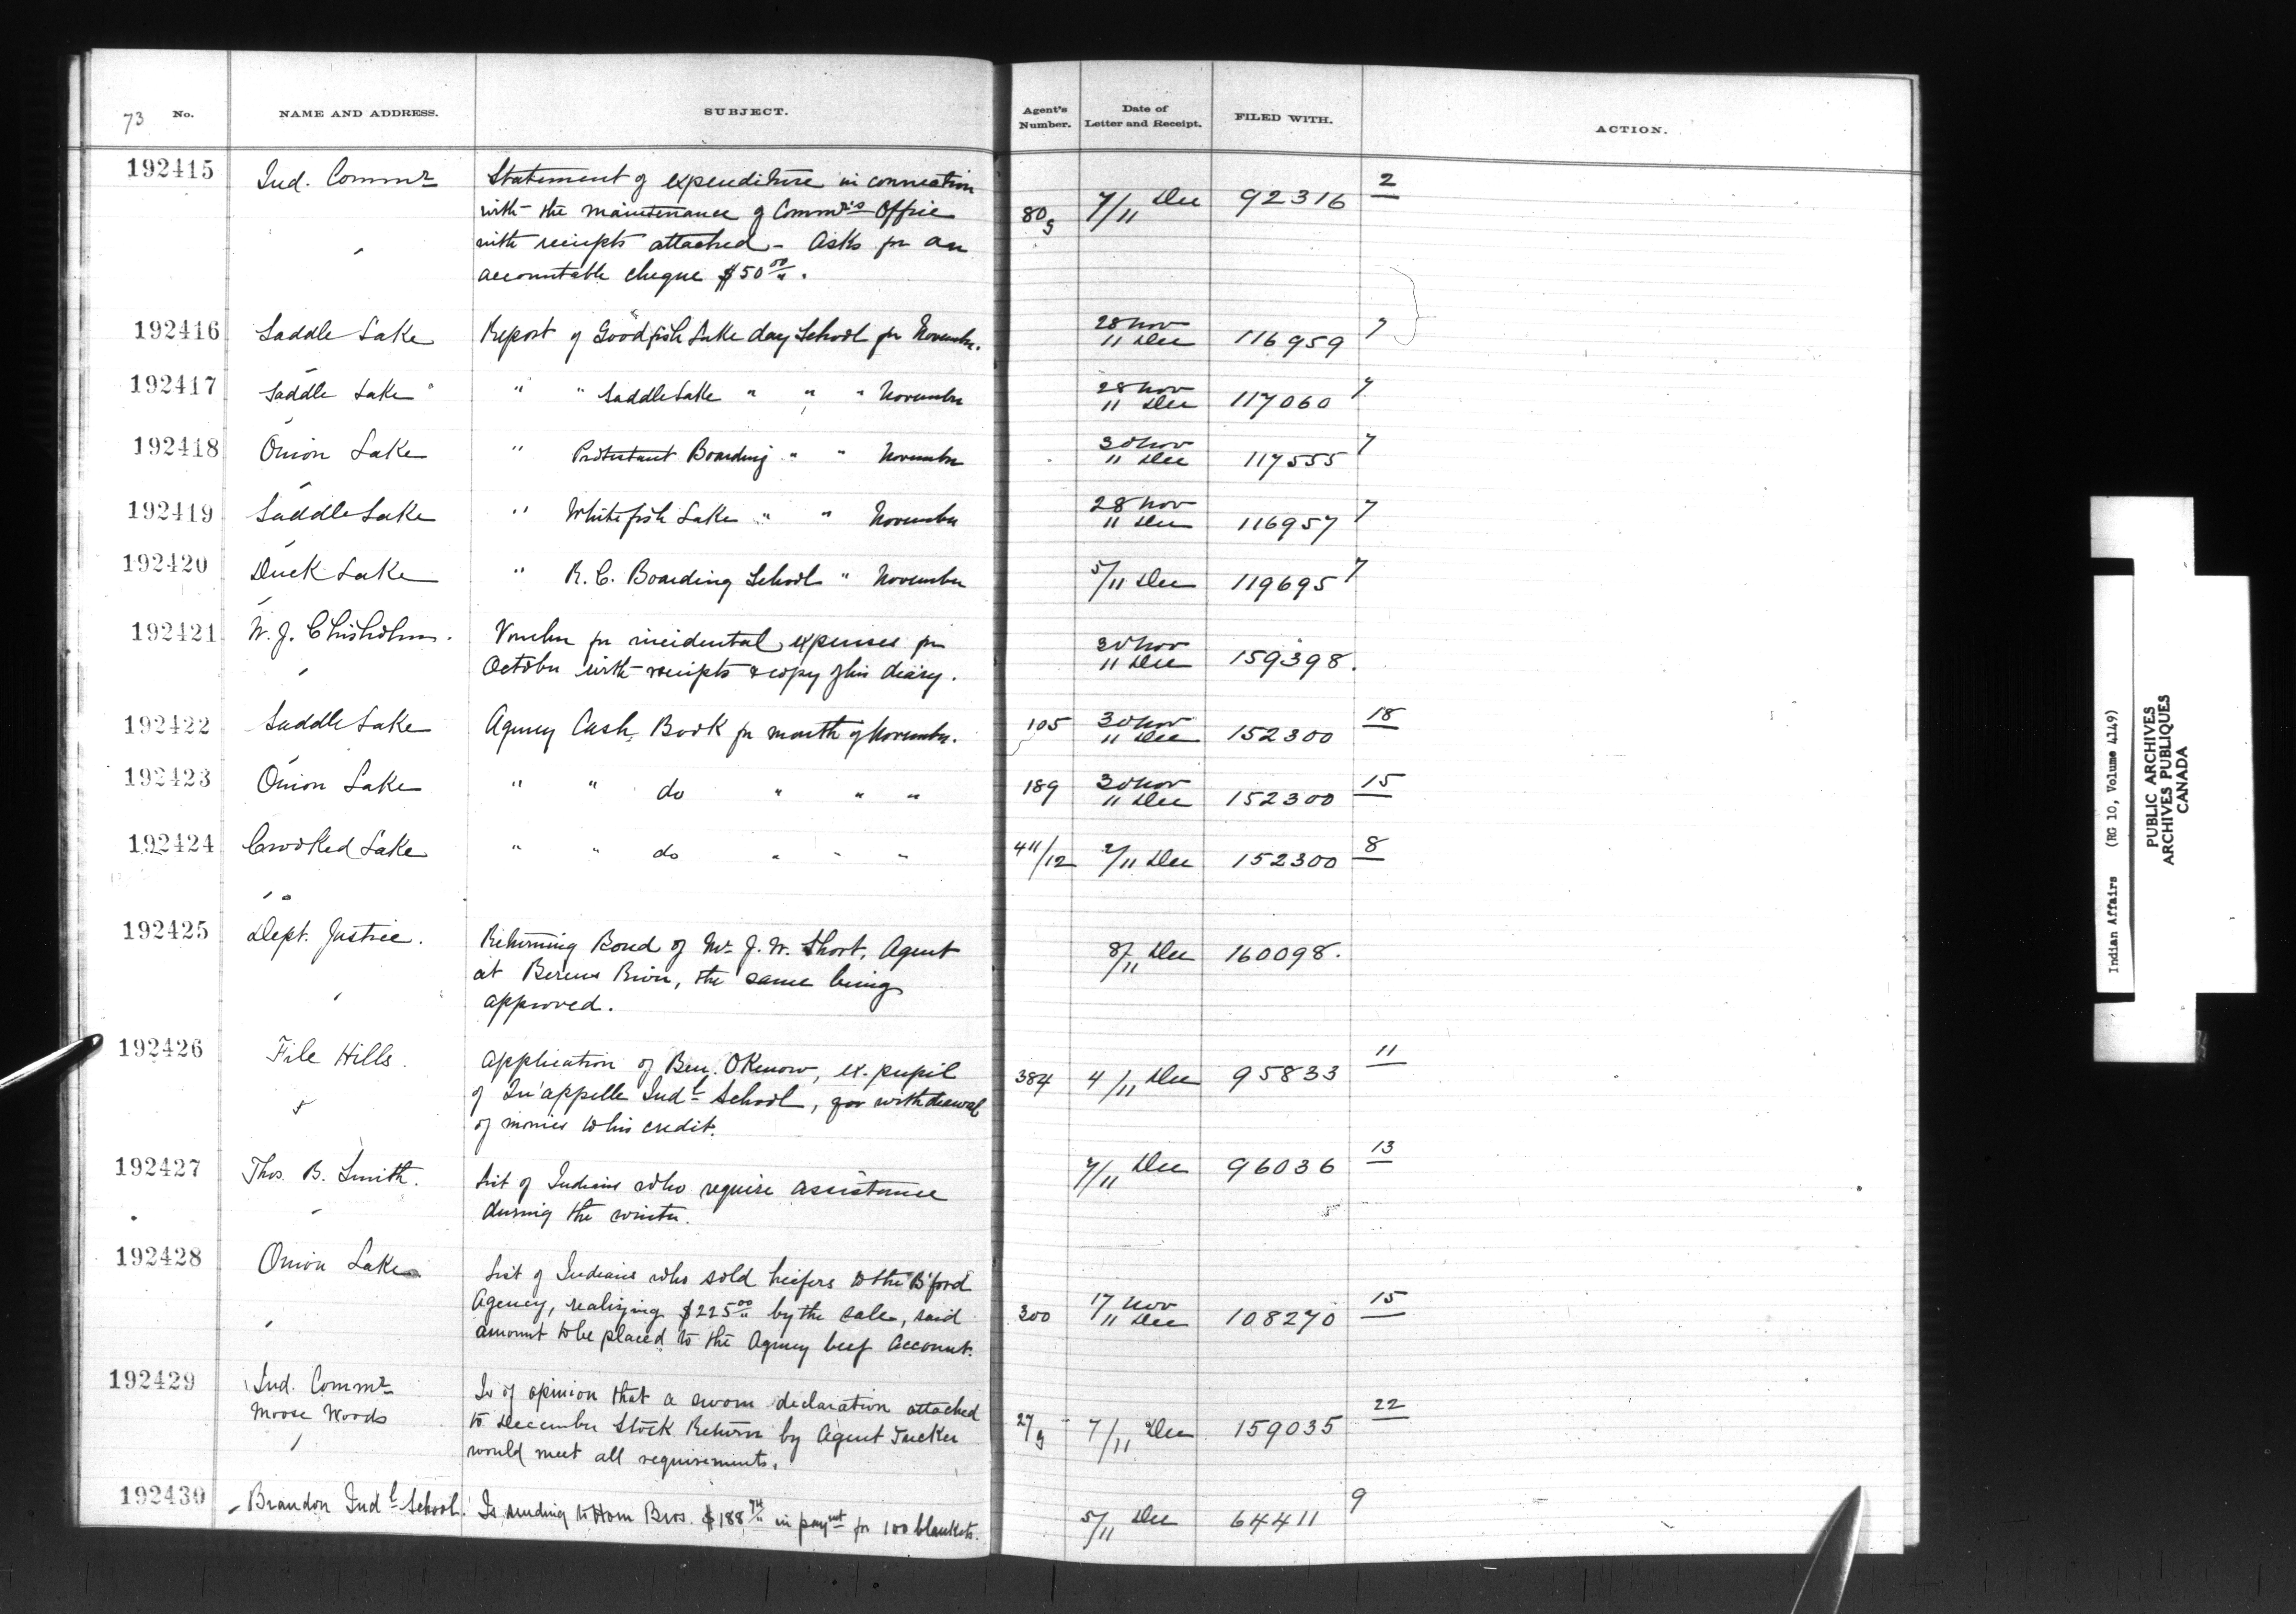 73 No. NAME AND ADDRESS. SUBJECT. Agent's Number. Date of Letter and Receipt. FILED WITH. ACTION.
192415 Ind. Commr Statement of expenditure in connection
with the maintenance of Commr's Office 80g 7/11 Dec 92316 2
with receipts attached - Asks for an
accountable cheque $50 00/".
192416 Saddle Lake Report of Goodfish Lake day School for November. 28 Nov 11 Dec 116959 7
192417 Saddle Lake " " Saddle Lake " " " November 28 Nov 11 Dec 117060 7
192418 Onion Lake " Protestant Boarding " " November 30 Nov 11 Dec 117555 7
192419 Saddle Lake " Whitefish Lake " " November 28 Nov 11 Dec 116957 7
192420 Duck Lake " R.C. Boarding School " November 5/11 Dec 119695 7
192421 W. J. Chisholm. Voucher for incidental expenses for 30 Nov
October with receipts & copy of his diary. 11 Dec 159398.
192422 Saddle Lake Agency Cash Book for month of November. 105 30 Nov 11 Dec 152300 18
192423 Onion Lake " " do " " " 189 30 Nov 11 Dec 152300 15
192424 Crooked Lake " " do " " " 411/12 2/11 Dec 152300 8
192425 Dept. Justice. Returning Bond of Mr J. W. Short, Agent 8/11 Dec 160098.
at Berens River, the same being
approved.
192426 File Hills. Application of Ben. Okenow, ex. pupil 384 4/11 Dec 95833 11
of Qu'appelle Indl School, for withdrawal
of monies to his credit.
192427 Thos. B. Smith. List of Indians who require assistance 7/11 Dec 96036 13
during the winter.
192428 Onion Lake List of Indians who sold heifers to the B'ford
Agency, realizing $225 00/" by the sale, said 300 17 Nov 11 Dec 108270 15
amount to be placed to the Agency beef account.
192429 Ind. Commr Is of opinion that a sworn declaration attached
Moose Woods to December Stock Return by Agent Tucker 27g 7/11 Dec 159035 22
would meet all requirements.
192430 Brandon Indl School. Is sending to Hom Bros. $188 74/" in paymt for 100 blankets. 5/11 Dec 64411 9
Indian Affairs (RG 10, Volume 4149)
PUBLIC ARCHIVES
ARCHIVES PUBLIQUES
CANADA